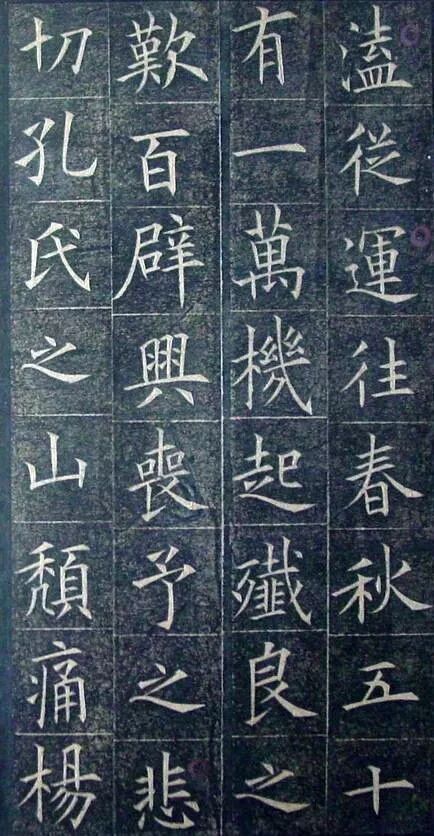 溘從運往春秋五十
有一萬機起殲良之
歎百辟興喪予之悲
切孔氏之山頹痛楊